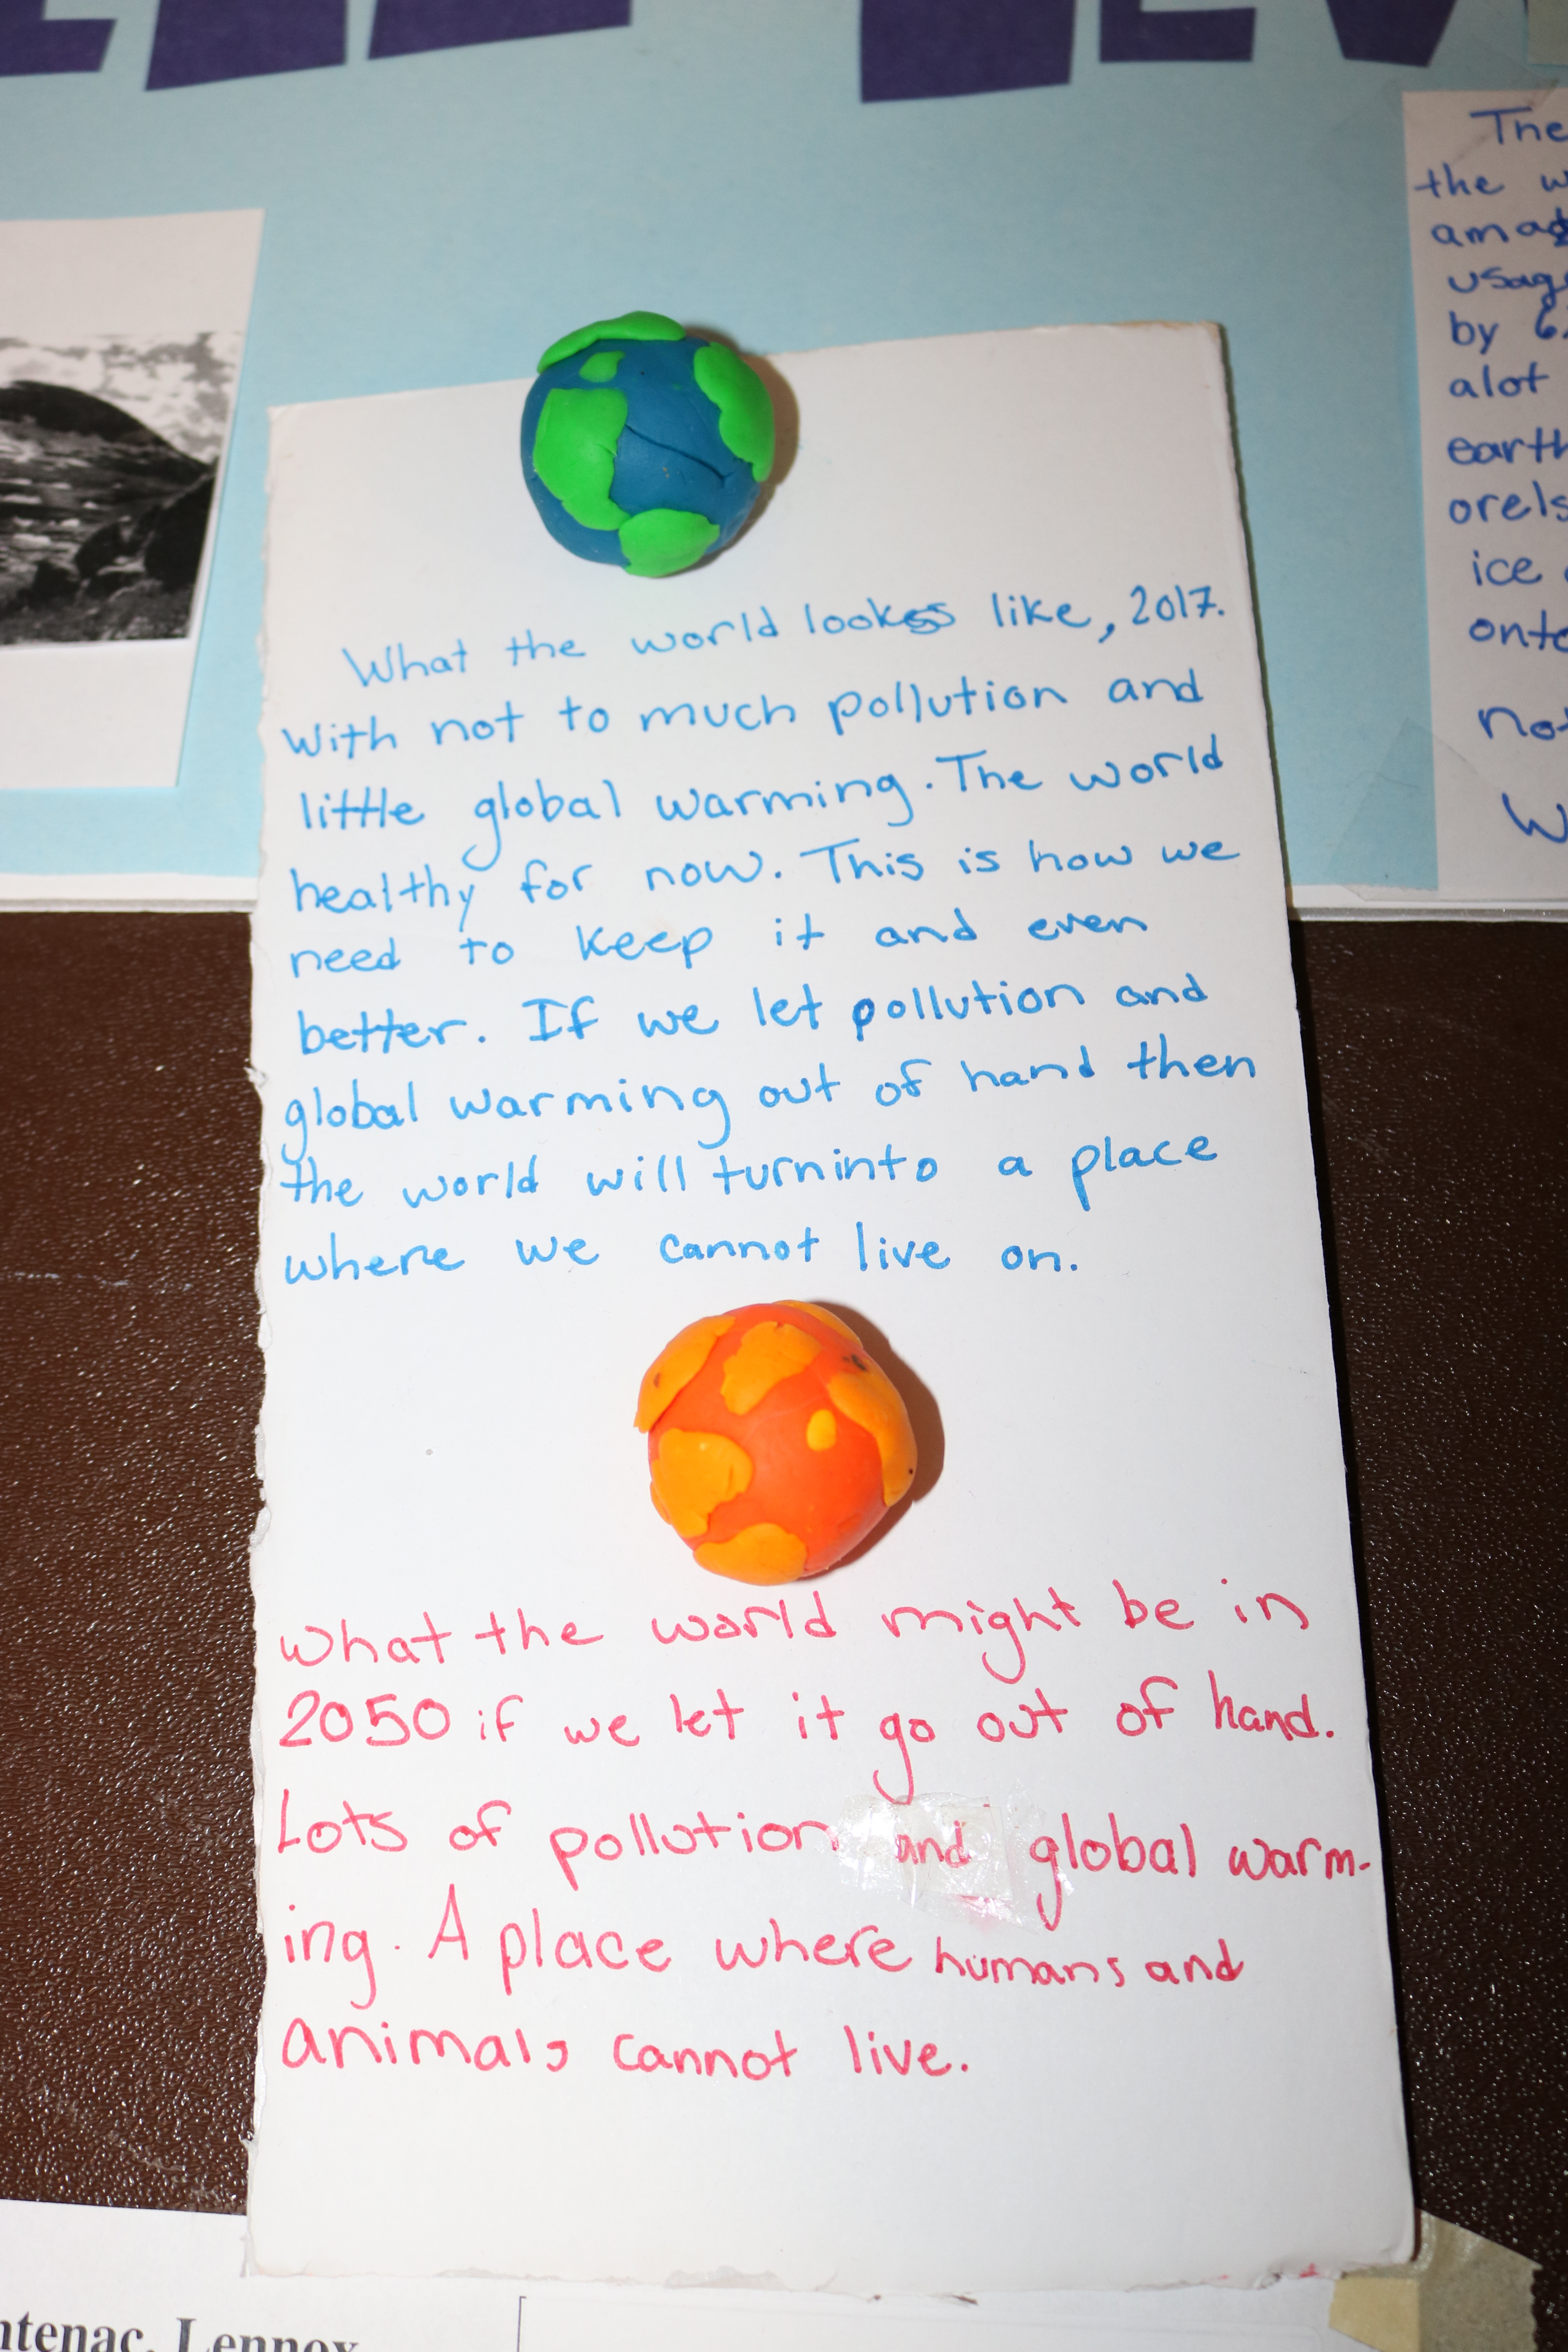 What the world lookes like, 2017.
With not to much pollution and
little global warming. The world
healthy for now. This is how we
need to keep it and even
better. If we let pollution and
global warming out of hand then
the world will turninto a place
where we cannot live on.
What the world might be in
2050 if we let it go out of hand.
Lots of pollution and global warm-
ing. A place where humans and
animals cannot live.
The
the w
amag
usag
by 6.
alot
earth
orels
ice
onto
not
W
ntenac, Lennox